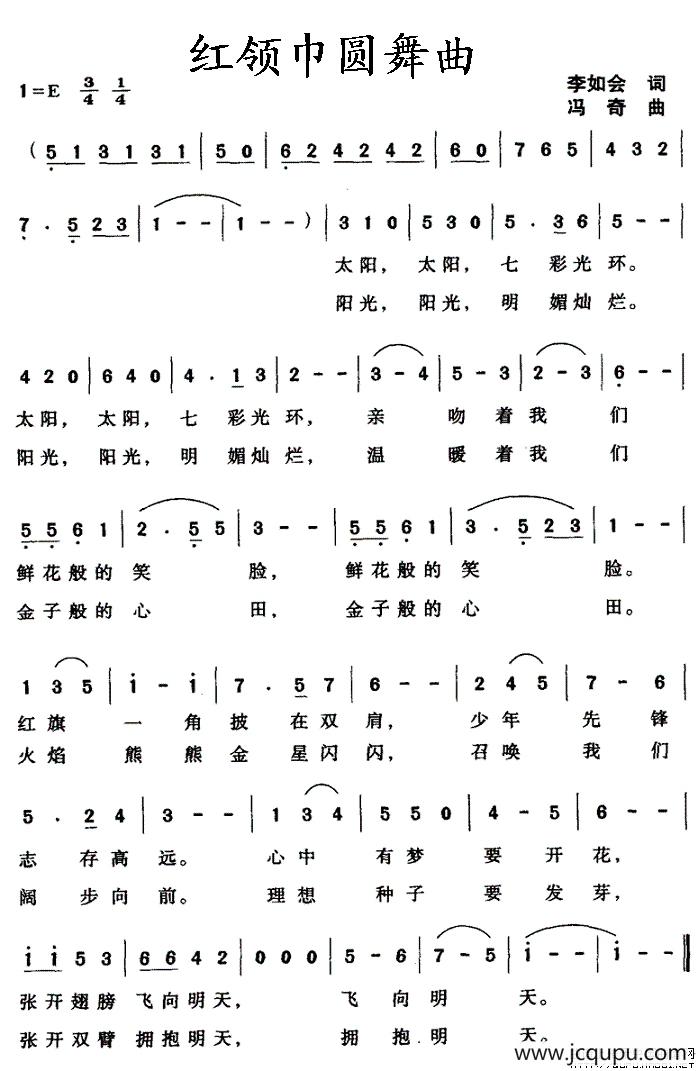 红领巾圆舞曲
1=E 3/4 1/4
李如会 词
冯奇 曲
( 5 1 3 1 3 1 | 5 0 | 6 2 4 2 4 2 | 6 0 | 7 6 5 | 4 3 2 |
7 · 5 2 3 | 1 - - | 1 - - ) | 3 1 0 | 5 3 0 | 5 · 3 6 | 5 - - |
太阳， 太阳， 七 彩光环。
阳光， 阳光， 明 媚灿烂。
4 2 0 | 6 4 0 | 4 · 1 3 | 2 - - | 3 - 4 | 5 - 3 | 2 - 3 | 6 - - |
太阳， 太阳， 七 彩光环， 亲 吻着我 们
阳光， 阳光， 明 媚灿烂， 温 暖着我 们
5 5 6 1 | 2 · 5 5 | 3 - - | 5 5 6 1 | 3 · 5 2 3 | 1 - - |
鲜花般的笑 脸， 鲜花般的笑 脸。
金子般的心 田， 金子般的心 田。
1 3 5 | i - i | 7 · 5 7 | 6 - - | 2 4 5 | 7 - 6 |
红旗 一 角披 在双肩， 少年 先 锋
火焰 熊 熊金 星闪闪， 召唤 我 们
5 · 2 4 | 3 - - | 1 3 4 | 5 5 0 | 4 - 5 | 6 - - |
志 存高 远。 心中 有梦 要 开花，
阔 步向 前。 理想 种子 要 发芽，
i i 5 3 | 6 6 4 2 | 0 0 0 | 5 - 6 | 7 - 5 | i - - | i - - ‖
张开翅膀 飞向明天， 飞 向 明 天。
张开双臂 拥抱明天， 拥 抱 明 天。
www.jcqupu.com